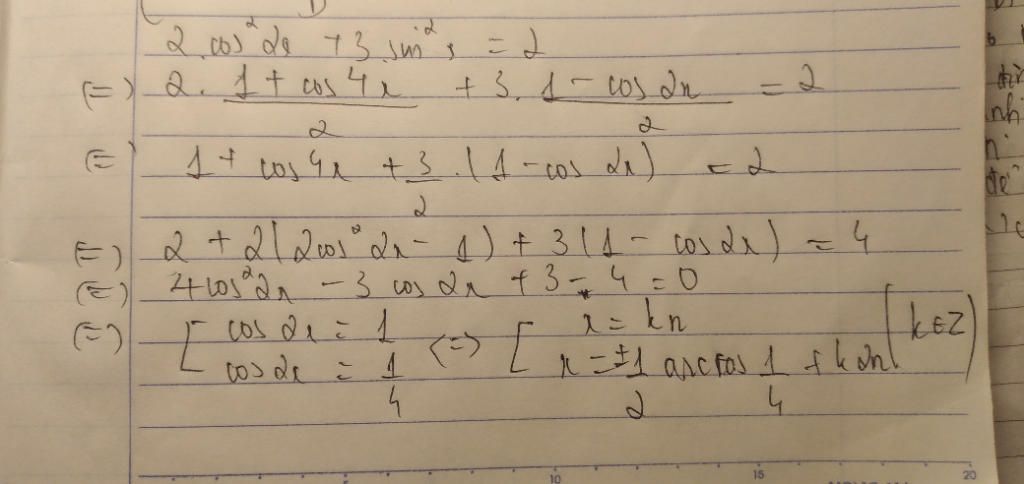 2.cos²2x + 3.sin²x = 2
(=) 2. (1 + cos4x)/2 + 3. (1 - cos2x)/2 = 2
(=) 1 + cos4x + 3/2 .(1 - cos 2x) = 2
(=) 2 + 2(2cos²2x - 1) + 3(1 - cos2x) = 4
(=) 4cos²2x - 3 cos 2x + 3 - 4 = 0
(=) [ cos 2x = 1 (=) [ x = kπ (k∈Z)
cos2x = 1/4 x = ±1/2 arccos 1/4 + k2π
10 15 20